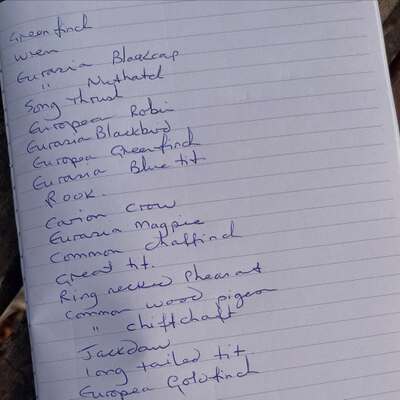 Greenfinch
Wren
Eurasia Blackcap
" Nuthatch
Song Thrush
European Robin
Eurasia Blackbird
Europea Greenfinch
Eurasia Blue tit
Rook.
Carion Crow
Eurasia Magpie
Common Chaffinch
Great tit.
Ring necked Pheasant
Common wood pigeon
" chiffchaff
Jackdaw
long tailed tit
Europea Goldfinch